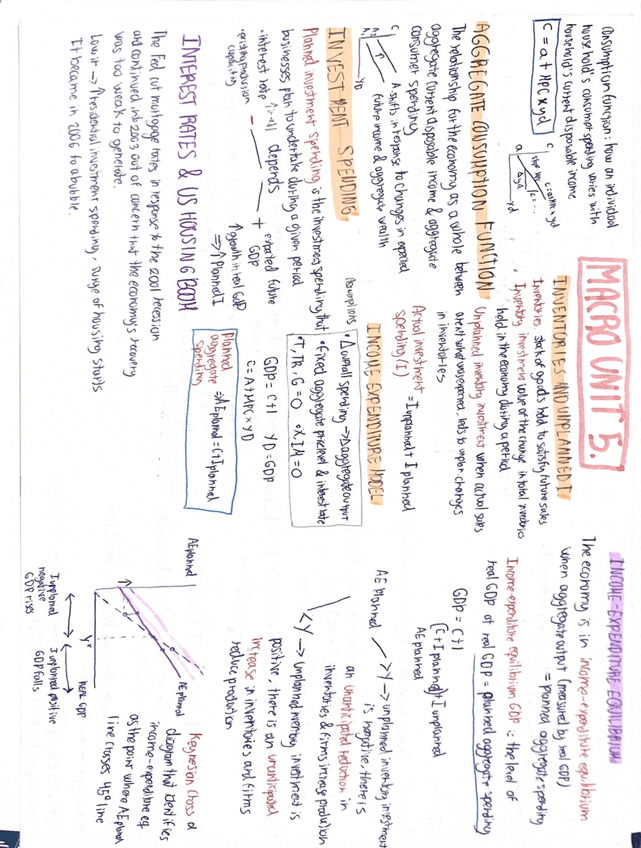 MACRO UNIT 5.
Consumption function: how an individual
household's consumer spending varies with
household's current disposable income
C = a + MPC x yd
C
a
yd
Δyd
AGGREGATE CONSUMPTION FUNCTION
The relationship for the economy as a whole between
aggregate current disposable income & aggregate
consumer spending
C
A shifts in response to changes in expected
future income & aggregate wealth
A2
A1
YD
INVESTMENT SPENDING
Planned investment spending is the investment spending that
businesses plan to undertake during a given period
depends
- +
• interest rate
• existing production
capacity
expected future
GDP
↑ growth in real GDP
=> ↑ Planned I
INTEREST RATES & US HOUSING BOOM
The Fed cut mortgage rates in response to the 2001 recession
and continued into 2003 out of concern that the economy's recovery
was too weak to generate.
Low ir => ↑ residential investment spending, surge of housing starts
It became in 2006 to a bubble
INVENTORIES AND UNPLANNED I
Inventories: stock of goods held to satisfy future sales
Inventory investment: value of the change in total inventories
held in the economy during a period.
Unplanned inventory investment when actual sales
are
unexpected, leads to unplan changes
in inventories
Actual investment
spending (I)
= I unplanned + I planned
INCOME-EXPENDITURE MODEL
Assumptions
• Δ overall spending → Δ aggregate output
• Fixed aggregate price level & interest rate
• T, TR, G = 0 • X, IM = 0
GDP = C + I YD = GDP
C = A + MPC x YD
Planned
aggregate
spending
=> AE planned = C + I planned
INCOME-EXPENDITURE EQUILIBRIUM
The economy is in income-expenditure equilibrium
when aggregate output (measured by real GDP)
= planned aggregate spending
Income-expenditure equilibrium GDP is the level of
real GDP at real GDP = planned aggregate spending
GDP = C + I
(C + I planned) + I unplanned
AE planned
AE planned
> Y → unplanned inventory investment
is negative, there is
an unanticipated reduction in
inventories & firms increase production
< Y → unplanned inventory investment is
positive, there is an unanticipated
increase in inventories and firms
reduce production
AE planned
AE planned
Y*
real GDP
I unplanned
negative
GDP rises
I unplanned positive
GDP falls
Keynesian Cross: a
diagram that identifies
income-expenditure eq
as the point where AE planned
line crosses 45° line